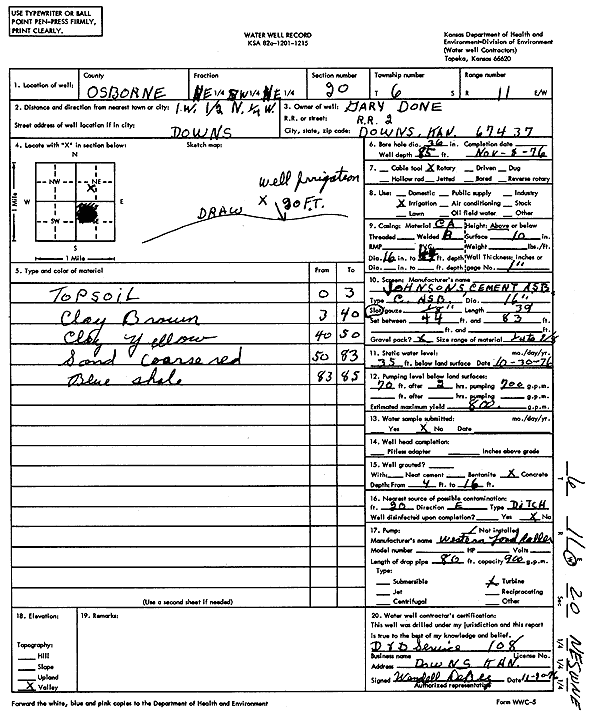 USE TYPEWRITER OR BALL
POINT PEN-PRESS FIRMLY,
PRINT CLEARLY.
WATER WELL RECORD
KSA 82a-1201-1215
Kansas Department of Health and
Environment-Division of Environment
(Water well Contractors)
Topeka, Kansas 66620
1. Location of well: County OSBORNE Fraction NE 1/4 SW 1/4 NE 1/4 Section number 20 Township number T 6 S Range number R 11 E/W
2. Distance and direction from nearest town or city: 1.W. 1/2 N. 1/4 W.
Street address of well location if in city: DOWNS
3. Owner of well: GARY DONE
R.R. or street: R.R. 2
City, state, zip code: DOWNS, KAN. 67437
4. Locate with "X" in section below:
N
NW NE
W E
SW SE
S
1 Mile
1 Mile
Sketch map:
Well Irrigation
X 20 FT.
DRAW
5. Type and color of material From To
TOPSOIL 0 3
Clay Brown 3 40
Clay Yellow 40 50
Sand coarse red 50 83
Blue shale 83 85
(Use a second sheet if needed)
6. Bore hole dia. 36 in. Completion date
Well depth 85 ft. Nov-8-76
7. Cable tool X Rotary Driven Dug
Hollow rod Jetted Bored Reverse rotary
8. Use: Domestic Public supply Industry
X Irrigation Air conditioning Stock
Lawn Oil field water Other
9. Casing: Material CA Height: Above or below
Threaded Welded B Surface 10 in.
RMP PVC Weight lbs./ft.
Dia. 16 in. to ft. depth Wall Thickness: inches or
Dia. in. to ft. depth gage No. 1"
10. Screen: Manufacturer's name
JOHNSONS CEMENT ASB
Type C. ASB. Dia. 16"
Slot/gauze 1/8" Length 39
Set between 44 ft. and 83 ft.
ft. and ft.
Gravel pack? X Size range of material
11. Static water level: mo./day/yr.
35 ft. below land surface Date 10-30-76
12. Pumping level below land surfaces:
70 ft. after 2 hrs. pumping 700 g.p.m.
ft. after hrs. pumping g.p.m.
Estimated maximum yield 800 g.p.m.
13. Water sample submitted: mo./day/yr.
Yes X No Date
14. Well head completion:
Pitless adapter Inches above grade
15. Well grouted?
With: Neat cement Bentonite X Concrete
Depth: From 4 ft. to 16 ft.
16. Nearest source of possible contamination:
ft. 20 Direction E Type DITCH
Well disinfected upon completion? Yes X No
17. Pump: Not installed
Manufacturer's name Western Land Roller
Model number HP Volts
Length of drop pipe 80 ft. capacity 900 g.p.m.
Type:
Submersible X Turbine
Jet Reciprocating
Centrifugal Other
18. Elevation:
Topography:
Hill
Slope
Upland
X Valley
19. Remarks:
20. Water well contractor's certification:
This well was drilled under my jurisdiction and this report
is true to the best of my knowledge and belief.
D & D Service 108
Business name License No.
Address DOWNS KAN.
Signed Wendell Date
Authorized representative
Forward the white, blue and pink copies to the Department of Health and Environment
Form WWC-5
T 6 R 11 E W Sec 20 NESWNE 1/4 1/4 1/4